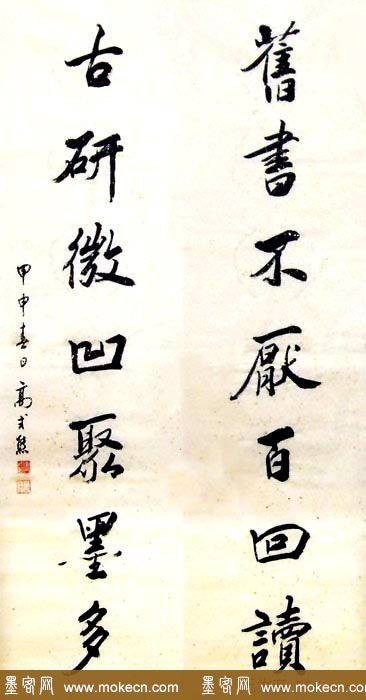 舊書不厭百回讀
古研微凹聚墨多
甲申春日高式熊
墨客网 www.mokecn.com 墨客网 www.mokecn.com